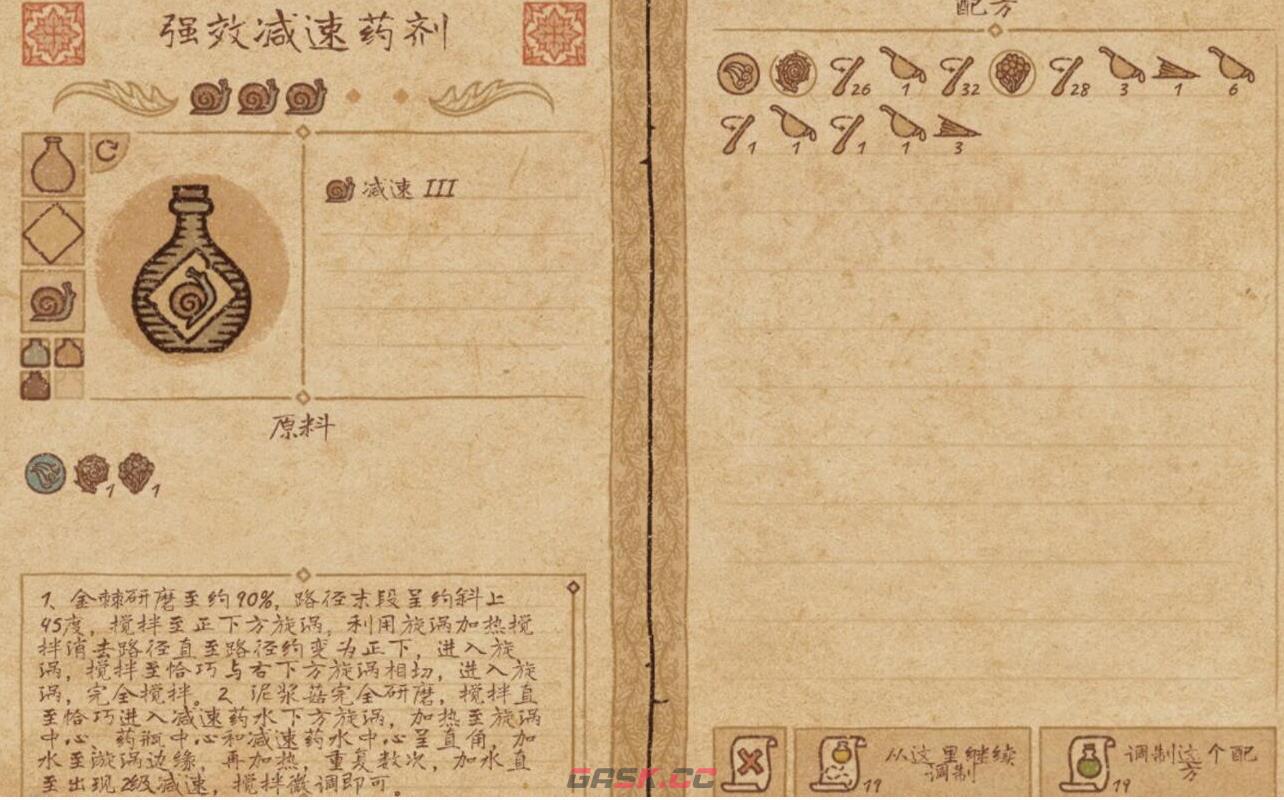 强效减速药剂
减速 III
原料
1
1
1、金棘研磨至约90%，路径末段呈约斜上
45度，搅拌至正下方旋涡，利用旋涡加热搅
拌消去路径直至路径约变为正下，进入旋
涡，搅拌至恰巧与右下方旋涡相切，进入旋
涡，完全搅拌。2、泥浆菇完全研磨，搅拌直
至恰巧进入减速药水下方旋涡，加热至旋涡
中心，药瓶中心和减速药水中心呈直角，加
水至漩涡边缘，再加热，重复数次，加水直
至出现2级减速，搅拌微调即可。
配方
26 1 32 28 3 1 6
1 1 1 1 3
19
从这里继续
调制
19
调制这个配
方
GASK.CC